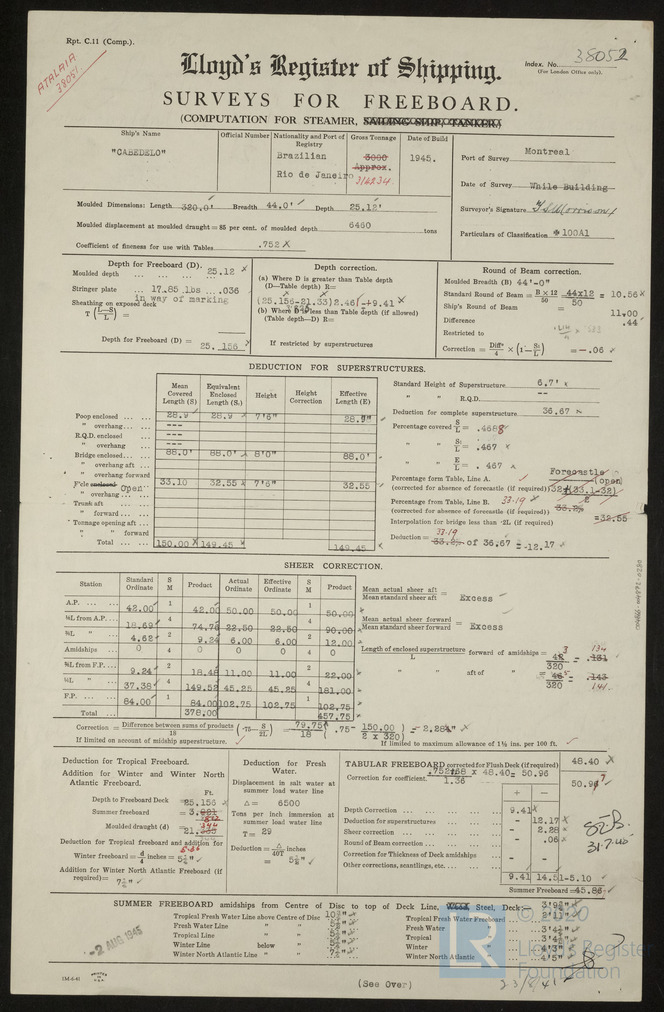 Rpt. C.11 (Comp.).
ATALAIA
38051.
Lloyd's Register of Shipping.
Index. No. 38052
(For London Office only).
SURVEYS FOR FREEBOARD.
(COMPUTATION FOR STEAMER, SAILING SHIP, TANKER)
Ship's Name
Official Number
Nationality and Port of Registry
Gross Tonnage
Date of Build
"CABEDELO"
Brazilian
Rio de Janeiro
3000
Approx.
1945.
Port of Survey Montreal
Date of Survey While Building
Surveyor's Signature
Particulars of Classification 100A1
Moulded Dimensions: Length 320.0' Breadth 44.0' Depth 25.12'
Moulded displacement at moulded draught = 85 per cent. of moulded depth 6460 tons
Coefficient of fineness for use with Tables .752
Depth for Freeboard (D).
Moulded depth ... ... ... 25.12
Stringer plate ... 17.85 lbs ... .036
in way of marking
Sheathing on exposed deck
T (L—S/L) =
Depth for Freeboard (D) = 25.156
Depth correction.
(a) Where D is greater than Table depth
(D—Table depth) R=
(25.156-21.33)2.461 +9.41
(b) Where D is less than Table depth (if allowed)
(Table depth—D) R=
If restricted by superstructures
Round of Beam correction.
Moulded Breadth (B) 44'-0"
Standard Round of Beam = B × 12/50 44x12/50 = 10.56
Ship's Round of Beam = 11.00
Difference .44
Restricted to
Correction = Diff.ce/4 × (1 - S1/L) = -.06
DEDUCTION FOR SUPERSTRUCTURES.
Mean Covered Length (S)
Equivalent Enclosed Length (S1)
Height
Height Correction
Effective Length (E)
Poop enclosed ... ... 28.9 28.9 7'6" 28.9
" overhang ... ---
R.Q.D. enclosed ---
" overhang ---
Bridge enclosed ... ... 88.0' 88.0' 8'0" 88.0'
" overhang aft ...
" overhang forward
F'cle enclosed Open 33.10 32.55 7'6" 32.55
" overhang ... ...
Trunk aft ... ...
" forward ... ...
Tonnage opening aft ...
" " forward
Total ... ... 150.00 149.45 149.45
Standard Height of Superstructure 6.7'
" " R.Q.D. --
Deduction for complete superstructure 36.67
Percentage covered S/L = .4688
" " S1/L = .467
" " E/L = .467
Percentage form Table, Line A.
(corrected for absence of forecastle (if required))
Forecastle
(open)
32+(33.1-32)/2
=32.55
Percentage from Table, Line B. 33.19
(corrected for absence of forecastle (if required))
Interpolation for bridge less than ·2L (if required)
Deduction = 33.19 of 36.67 = -12.17
SHEER CORRECTION.
Station
Standard Ordinate
S M
Product
Actual Ordinate
Effective Ordinate
S M
Product
A.P. ... ... 42.00 1 42.00 50.00 50.00 1 50.00
⅙L from A.P. ... 18.69 4 74.76 22.50 22.50 4 90.00
⅓L " ... 4.62 2 9.24 6.00 6.00 2 12.00
Amidships ... 0 4 0 0 0 4 0
⅓L from F.P. ... 9.24 2 18.48 11.00 11.00 2 22.00
⅙L " ... 37.38 4 149.52 45.25 45.25 4 181.00
F.P. ... ... 84.00 1 84.00 102.75 102.75 1 102.75
Total ... ... 378.00 457.75
Mean actual sheer aft = Excess
Mean standard sheer aft
Mean actual sheer forward = Excess
Mean standard sheer forward
Length of enclosed superstructure forward of amidships = 43/320 = .131 134
L
" " aft of " = 46/320 = .143 141
Correction = Difference between sums of products/18 (·75— S/2L) = 79.75/18 (.75- 150.00/2 x 320) = -2.28"
If limited on account of midship superstructure.
If limited to maximum allowance of 1½ ins. per 100 ft.
Deduction for Tropical Freeboard.
Addition for Winter and Winter North Atlantic Freeboard.
Ft.
Depth to Freeboard Deck = 25.156
Summer freeboard = 3.
Moulded draught (d) = 21.
Deduction for Tropical freeboard and addition for
Winter freeboard = d/4 inches = 5¼"
Addition for Winter North Atlantic Freeboard (if required) =
Deduction for Fresh Water.
Displacement in salt water at summer load water line
Δ = 6500
Tons per inch immersion at summer load water line
T = 29
Deduction = Δ/40T inches
TABULAR FREEBOARD corrected for Flush Deck (if required) 48.40
Correction for coefficient .752+.68/1.36 x 48.40 = 50.96
50.96
+ −
Depth Correction ... 9.41
Deduction for superstructures ... − 12.17
Sheer correction ... − 2.28
Round of Beam correction ... .06
Correction for Thickness of Deck amidships ... − −
Other corrections, scantlings, etc. ... − −
9.41 14.51 -5.10
Summer Freeboard = 45.86
31.7.40.
SUMMER FREEBOARD amidships from Centre of Disc to top of Deck Line, Wood, Steel, Deck:—
Tropical Fresh Water Line above Centre of Disc
Fresh Water Line " "
Tropical Line " "
Winter Line below "
Winter North Atlantic Line " "
Tropical Fresh Water Freeboard
Fresh Water "
Tropical "
Winter " 4'3"
Winter North Atlantic " 4'5"
-2 AUG 1945
1M-6-41
(See Over)
© 2020
Lloyd's Register
Foundation
LR